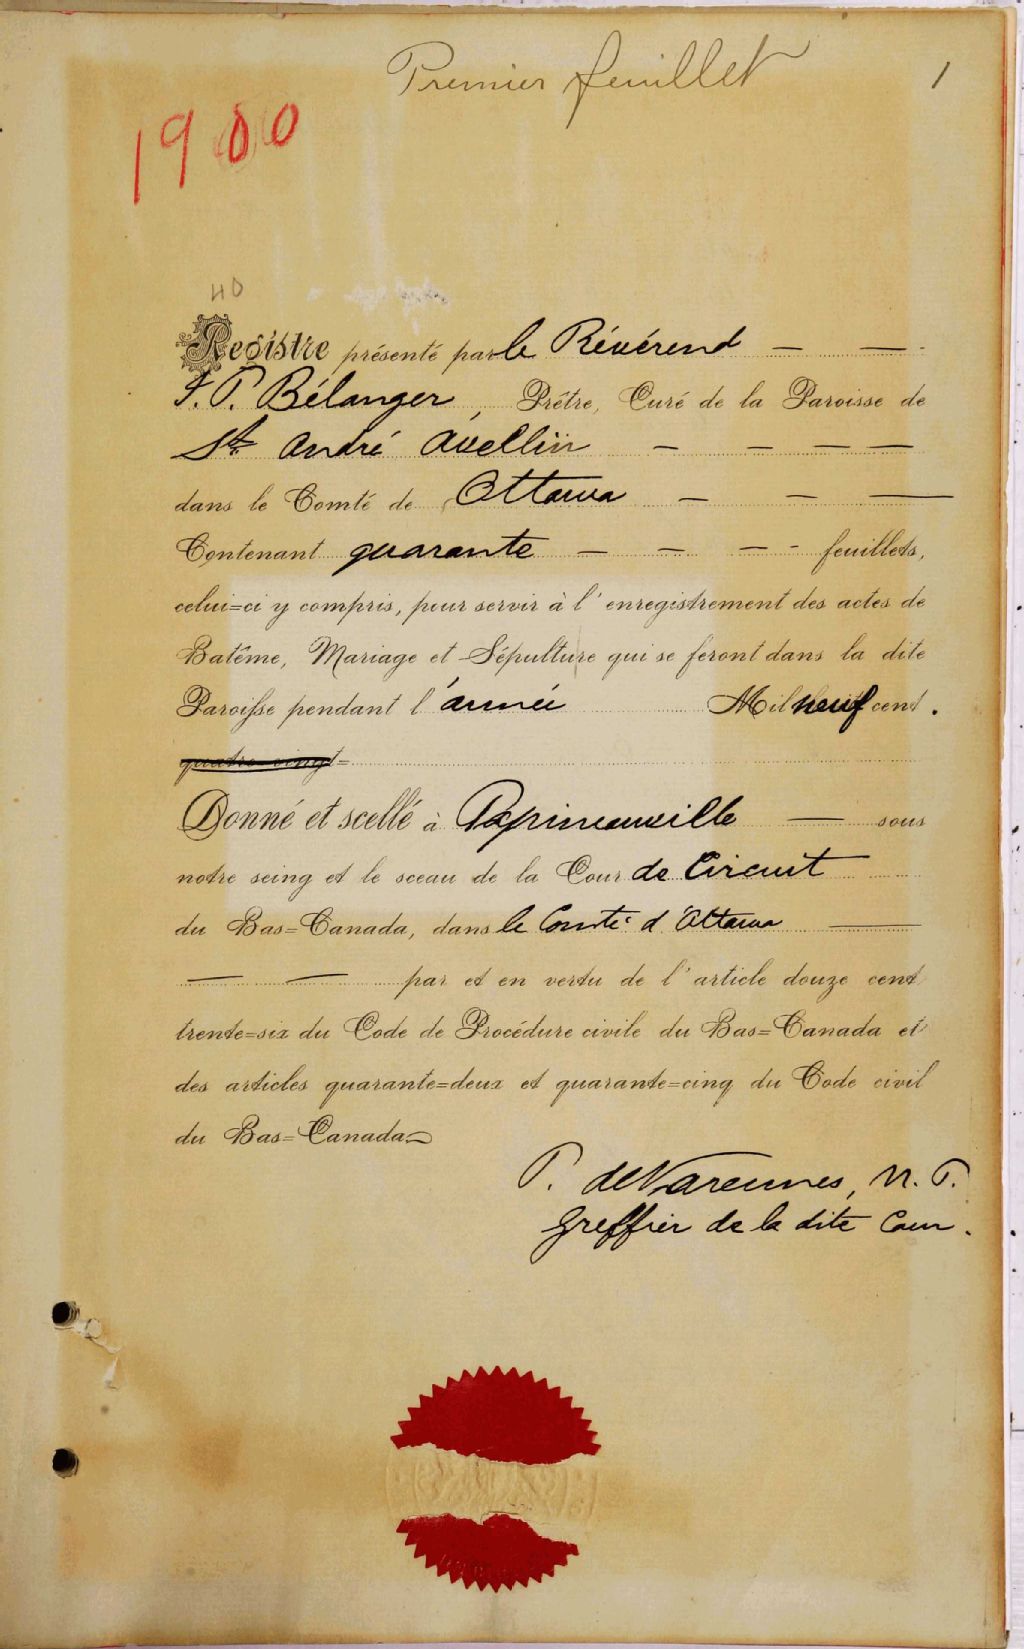 Premier feuillet 1
1900
40
Registre présenté par le Révérend — —
F. P. Bélanger, Prêtre, Curé de la Paroisse de
St André Avellin — — — —
dans le Comté de Ottawa — — —
Contenant quarante — — — - feuillets,
celui=ci y compris, pour servir à l'enregistrement des actes de
Batême, Mariage et Sépulture qui se feront dans la dite
Paroisse pendant l'année Mil neuf cent.
quatre-vingt=
Donné et scellé à Papineauville — sous
notre seing et le sceau de la Cour de Circuit
du Bas=Canada, dans le Comté d'Ottawa —
— — par et en vertu de l'article douze cent
trente=six du Code de Procédure civile du Bas=Canada et
des articles quarante=deux et quarante=cinq du Code civil
du Bas=Canada
P. deVarennes, N. P.
Greffier de la dite Cour.